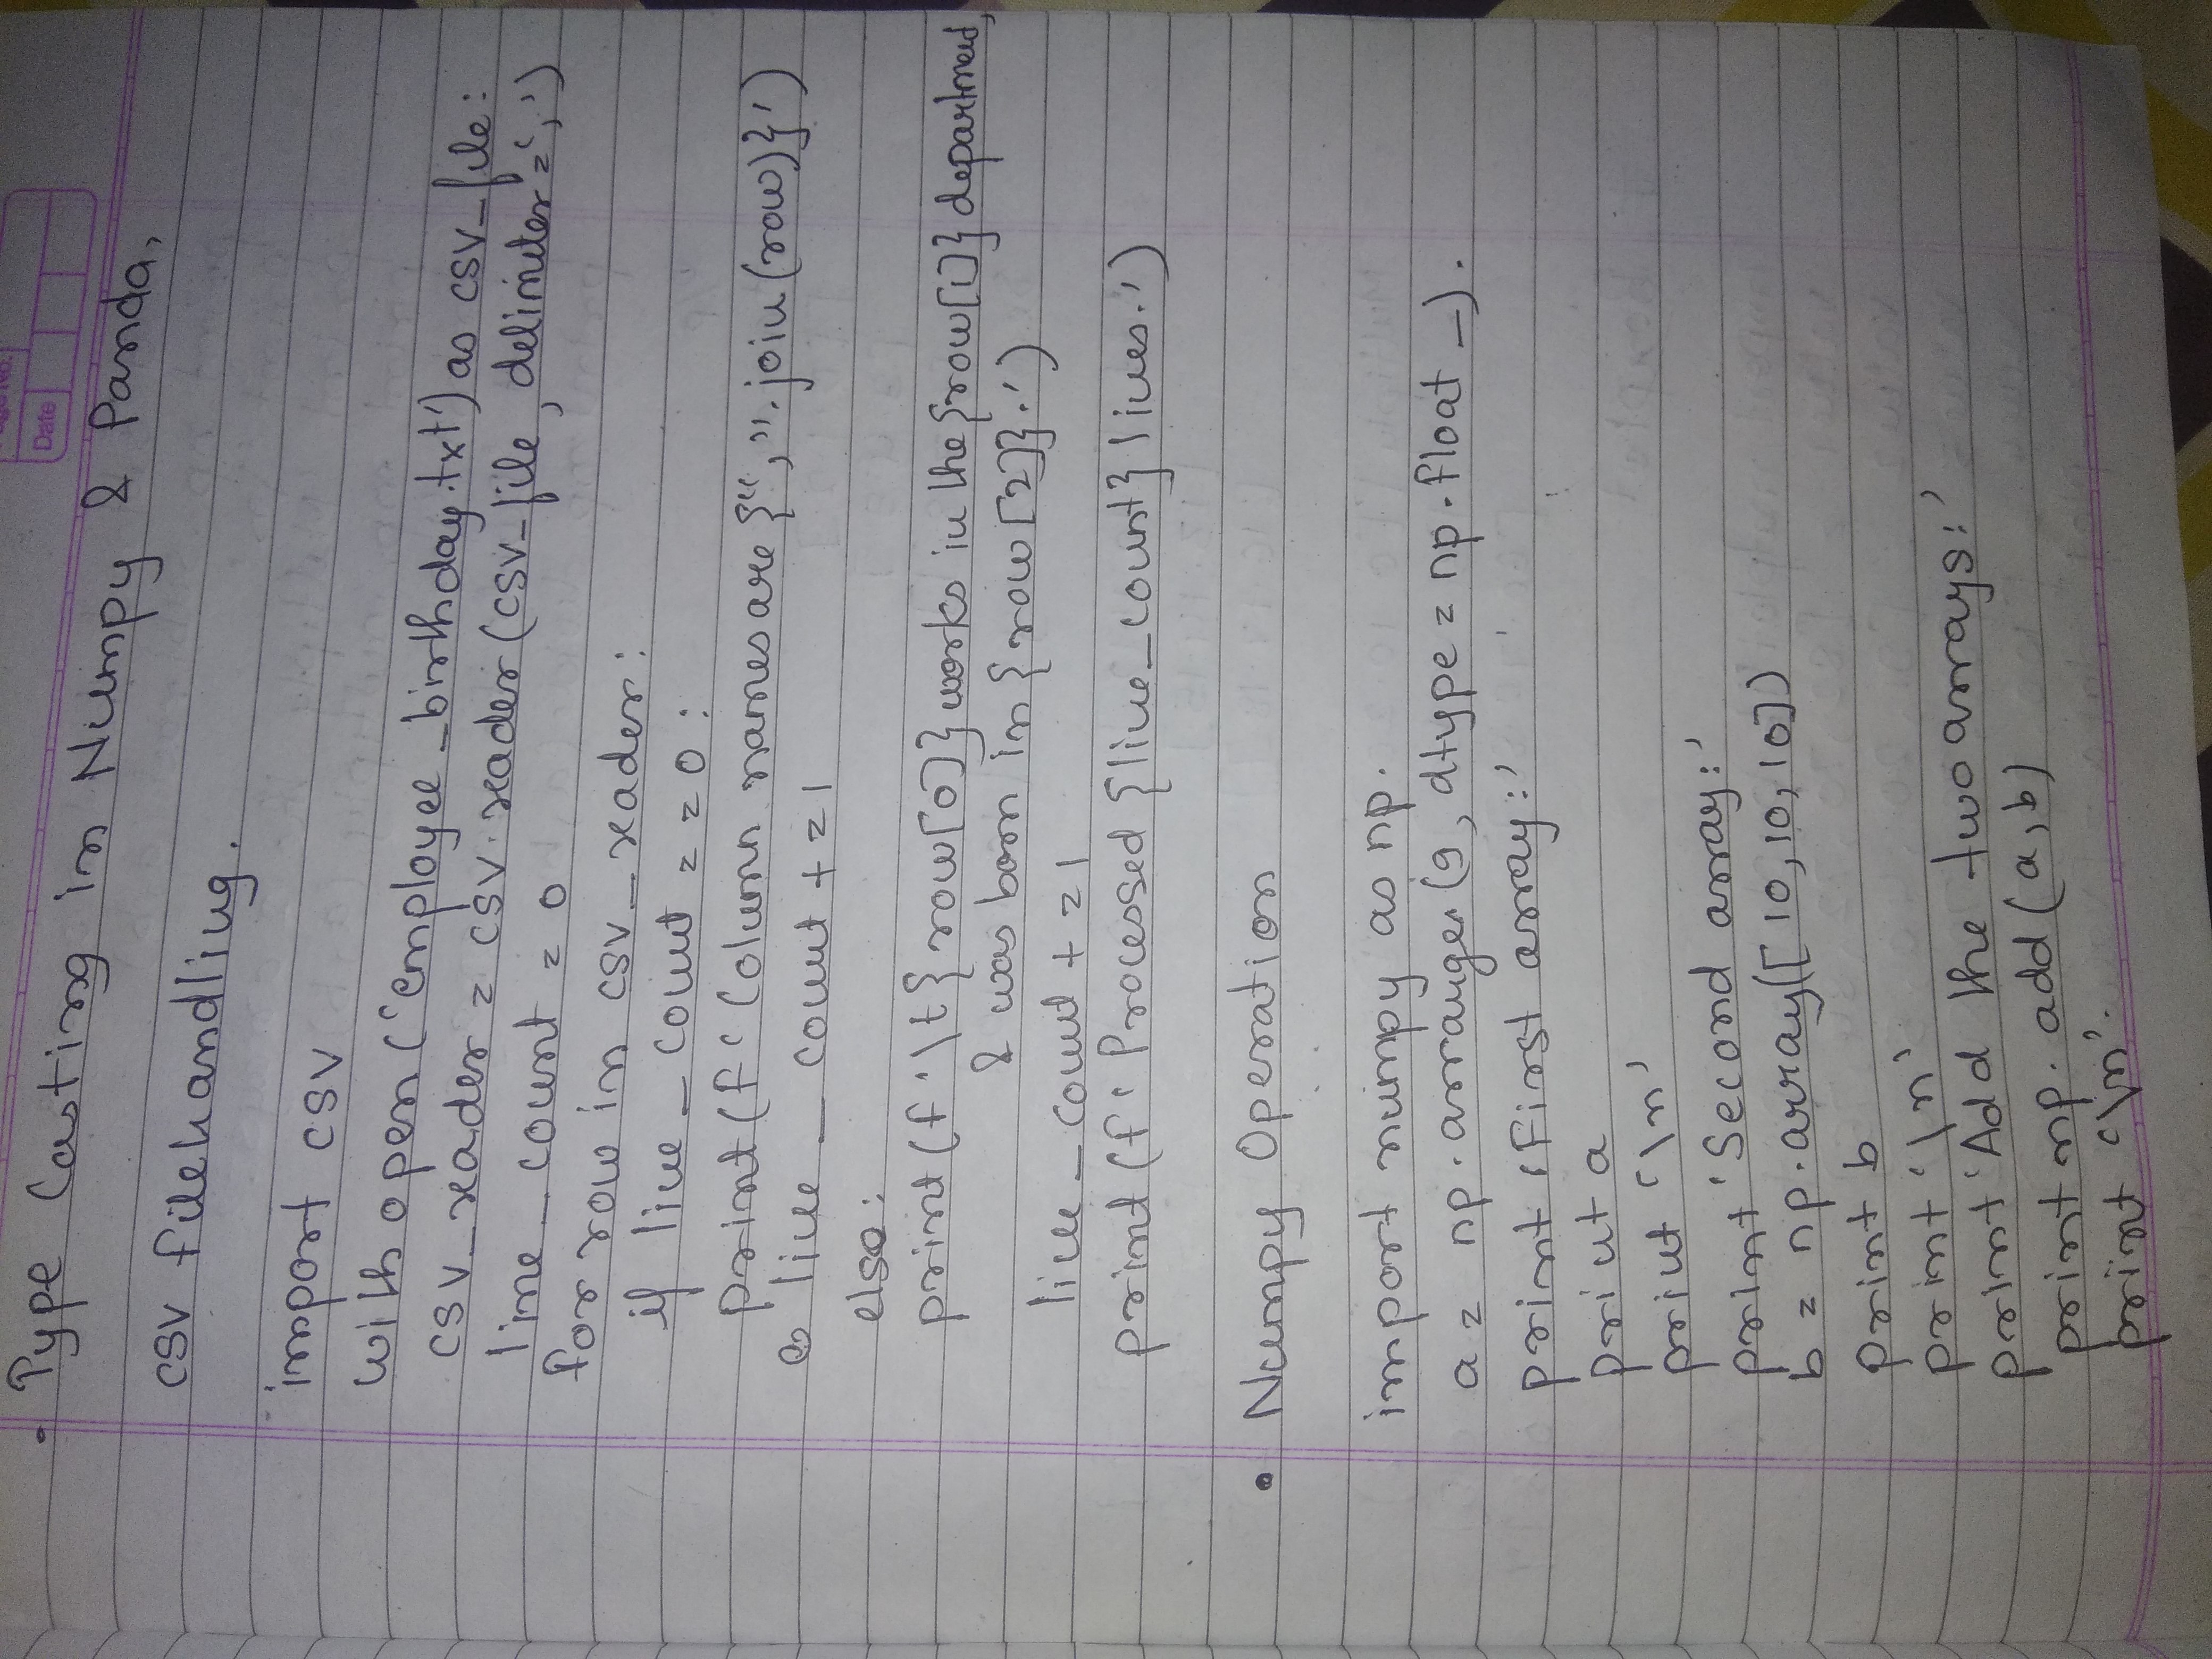 Page No.
Date
• Type Casting in Numpy & Panda,
CSV filehandling.
import csv
with open('employee_birthday.txt') as csv_file:
csv_reader = csv.reader(csv_file, delimiter=',')
line_count = 0
for row in csv_reader:
if line_count == 0:
print(f'Column names are {",".join(row)}')
line_count += 1
else:
print(f'\t{row[0]} works in the {row[1]} department,
& was born in {row[2]}.')
line_count += 1
print(f'Processed {line_count} lines.')
• Numpy Operation
import numpy as np.
a = np.arrange(9, dtype = np.float_).
print 'First array:'
print a
print '\n'
print 'Second array:'
b = np.array([10,10,10])
print b
print '\n'
print 'Add the two arrays:'
print np.add(a,b)
print '\n'.